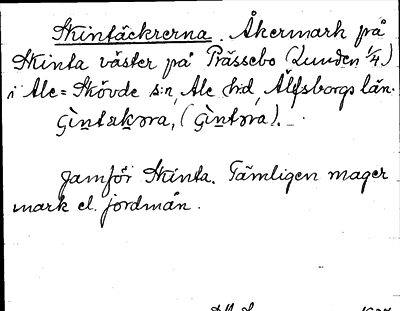 Skintäckrerna. Åkermark på
Skinta väster på Prässebo (Lunden 1/4)
i Ale=Skövde s:n, Ale h:d, Älfsborgs län.
Jämför Skinta. Tämligen mager
mark el. jordmån.